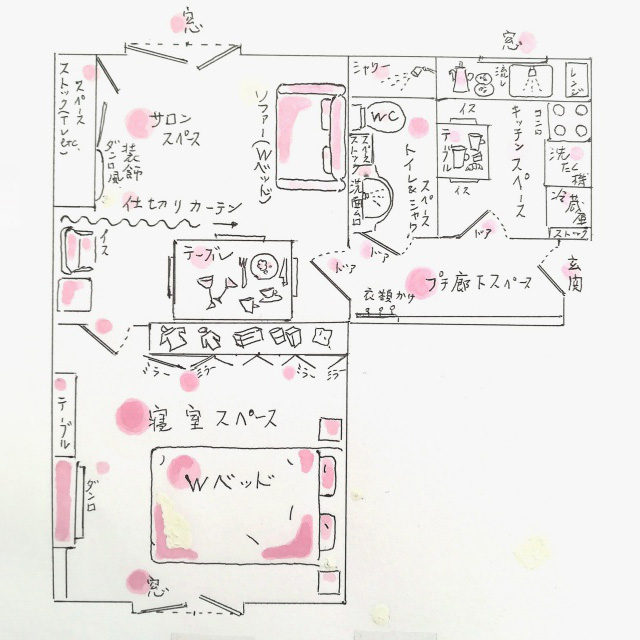 窓
窓
ストックスペース(トイレetc.)
ダンロ風装飾
サロンスペース
ソファー(Wベッド)
シャワー
WC
ストックスペース
洗面台
トイレ&シャワースペース
流し
レンジ
イス
テーブル
イス
キッチンスペース
コンロ
洗たく機
冷蔵庫
ストック
仕切りカーテン
イス
テーブル
ドア
ドア
ドア
プチ廊下スペース
玄関
衣類かけ
ミラー
ミラー
ミラー
ミラー
テーブル
寝室スペース
ダンロ
Wベッド
窓